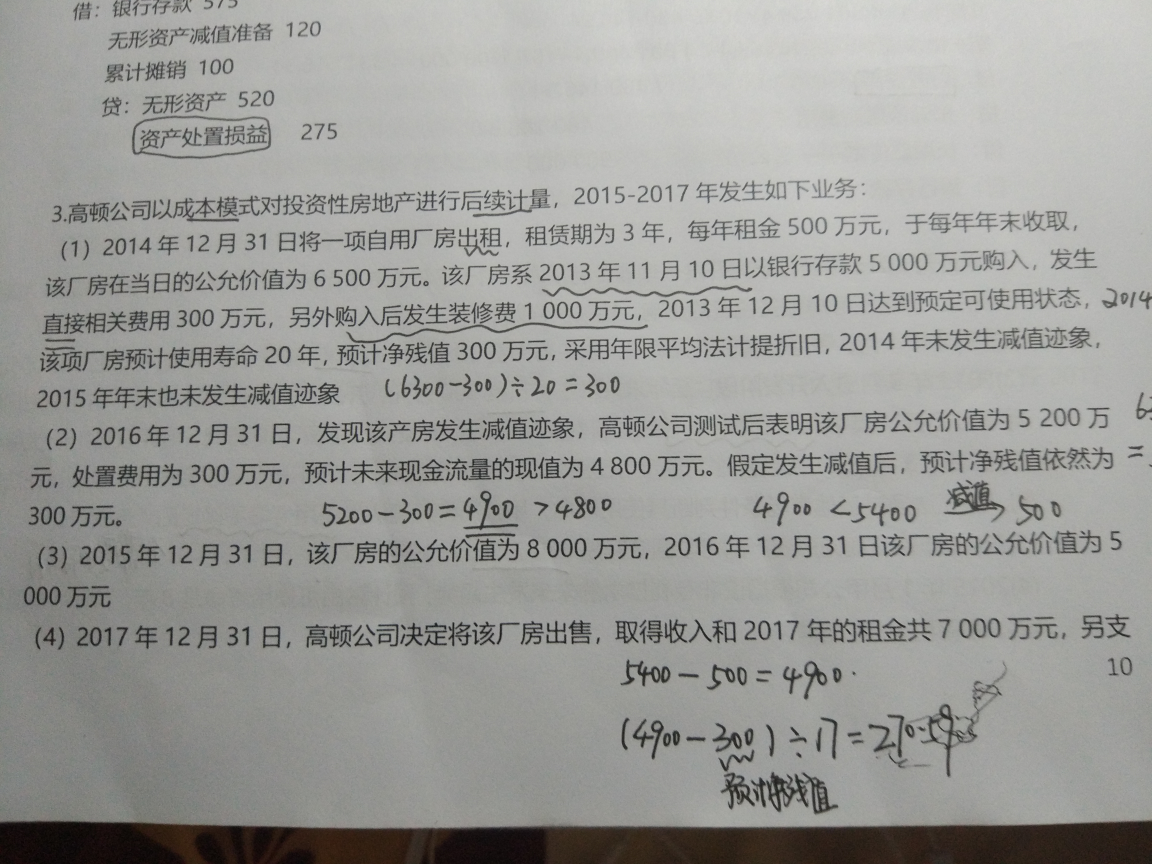 借：银行存款 575
无形资产减值准备 120
累计摊销 100
贷：无形资产 520
资产处置损益 275
3.高顿公司以成本模式对投资性房地产进行后续计量，2015-2017 年发生如下业务：
（1）2014 年 12 月 31 日将一项自用厂房出租，租赁期为 3 年，每年租金 500 万元，于每年年末收取，
该厂房在当日的公允价值为 6 500 万元。该厂房系 2013 年 11 月 10 日以银行存款 5 000 万元购入，发生
直接相关费用 300 万元，另外购入后发生装修费 1 000 万元，2013 年 12 月 10 日达到预定可使用状态，2014
该项厂房预计使用寿命 20 年，预计净残值 300 万元，采用年限平均法计提折旧，2014 年未发生减值迹象，
2015 年年末也未发生减值迹象 (6300-300)÷20=300
（2）2016 年 12 月 31 日，发现该产房发生减值迹象，高顿公司测试后表明该厂房公允价值为 5 200 万
元，处置费用为 300 万元，预计未来现金流量的现值为 4 800 万元。假定发生减值后，预计净残值依然为 =
300 万元。 5200-300=4900>4800 4900<5400 减值 500
（3）2015 年 12 月 31 日，该厂房的公允价值为 8 000 万元，2016 年 12 月 31 日该厂房的公允价值为 5
000 万元
（4）2017 年 12 月 31 日，高顿公司决定将该厂房出售，取得收入和 2017 年的租金共 7 000 万元，另支
5400-500=4900.
10
(4900-300)÷17=270.59
预计净残值